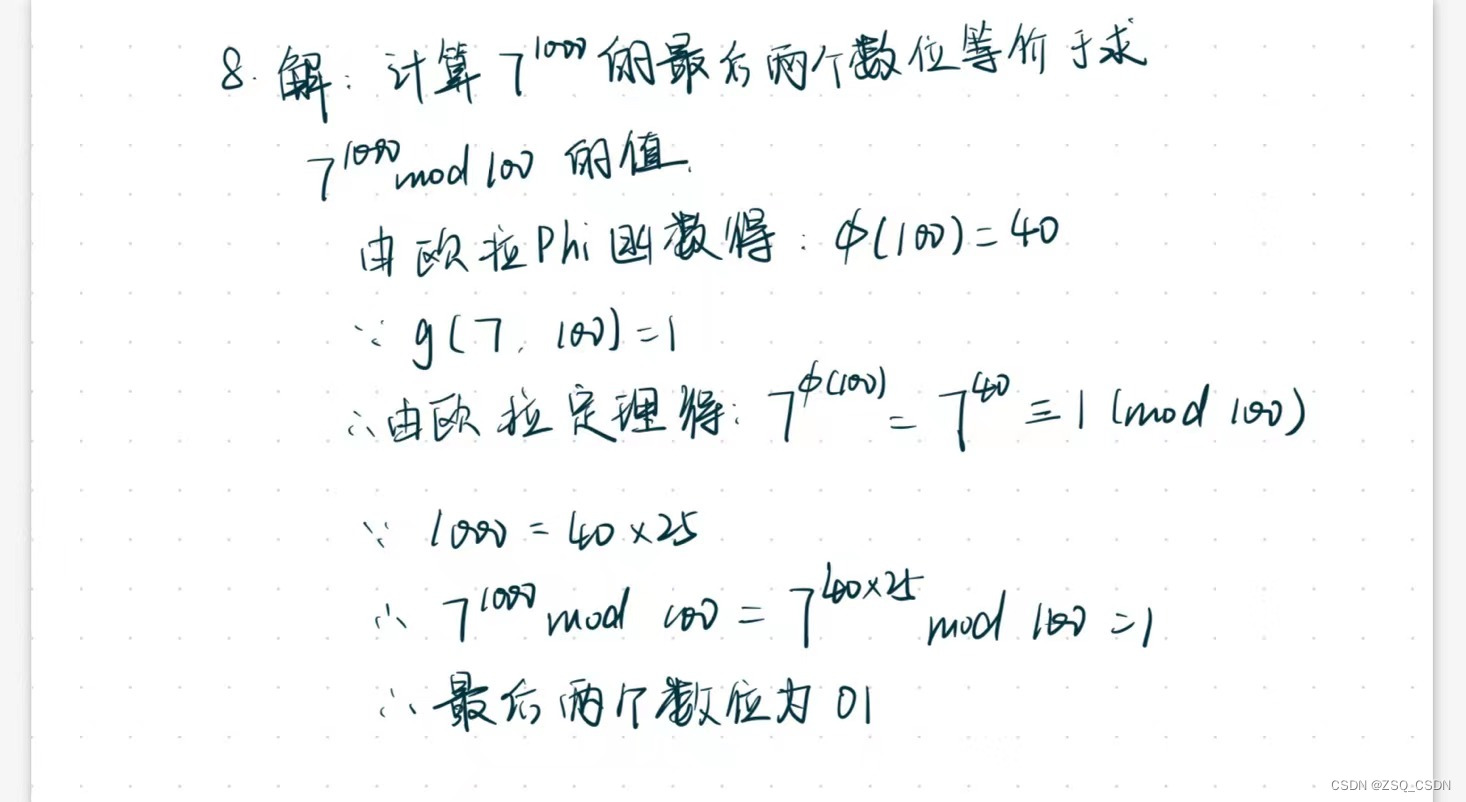 8. 解: 计算 7^1000 的最后两个数位等价于求
7^1000 mod 100 的值.
由欧拉Phi函数得: φ(100) = 40
∵ g(7, 100) = 1
∴ 由欧拉定理得: 7^φ(100) = 7^40 ≡ 1 (mod 100)
∵ 1000 = 40 × 25
∴ 7^1000 mod 100 = 7^40×25 mod 100 = 1
∴ 最后两个数位为 01
CSDN @ZSQ_CSDN